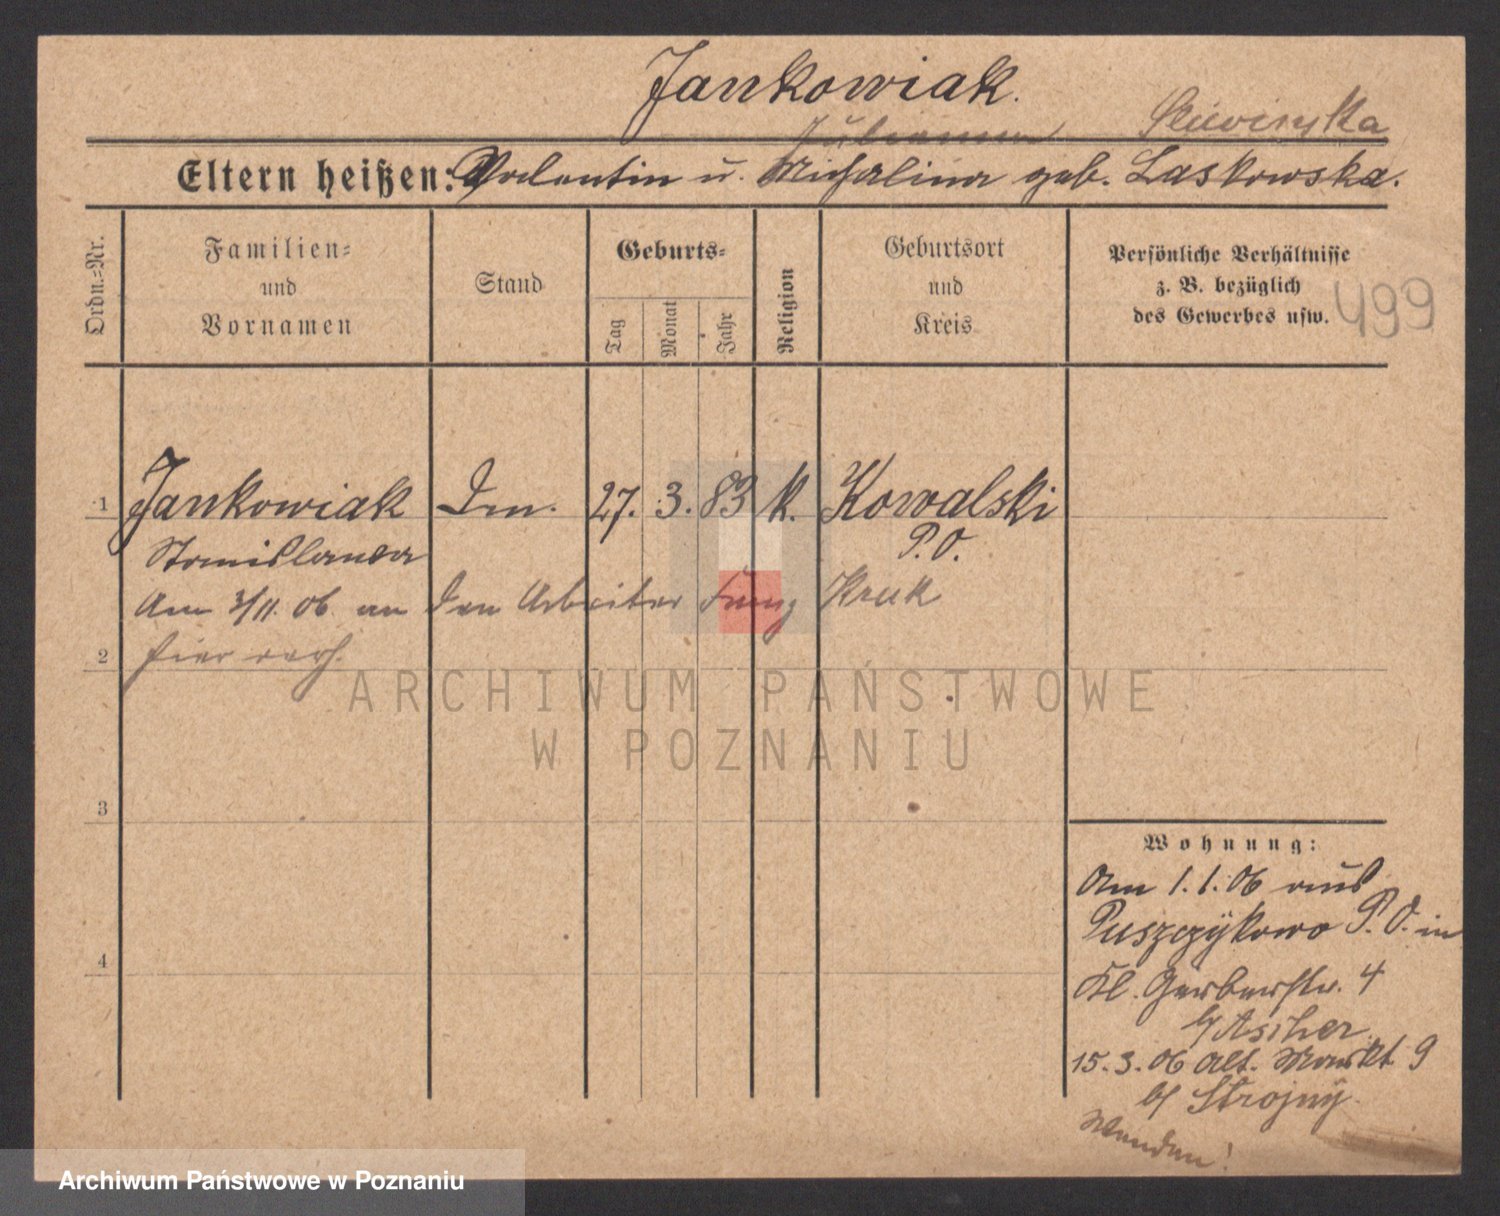 Jankowiak.
Eltern heißen: Valentin u. Michalina geb. Laskowska.
Ordn.=Nr.
Familien=
und
Vornamen
Stand
Geburts=
Tag
Monat
Jahr
Religion
Geburtsort
und
Kreis
Persönliche Verhältnisse
z. B. bezüglich
des Gewerbes usw.
499
1 Jankowiak 27. 3. 83 k. Kowalski
Stanislawa P. O.
Am 3/11. 06. an den Arbeiter Kruk
2 hier verh.
3
4
Wohnung:
Am 1.1.06 aus
Puszczykowo P. O. in
Kl. Gerberstr. 4
b/ Ascher
15.3.06 Alt. Markt 9
b/ Strojny
Wenden!
ARCHIWUM PAŃSTWOWE
W POZNANIU
Archiwum Państwowe w Poznaniu